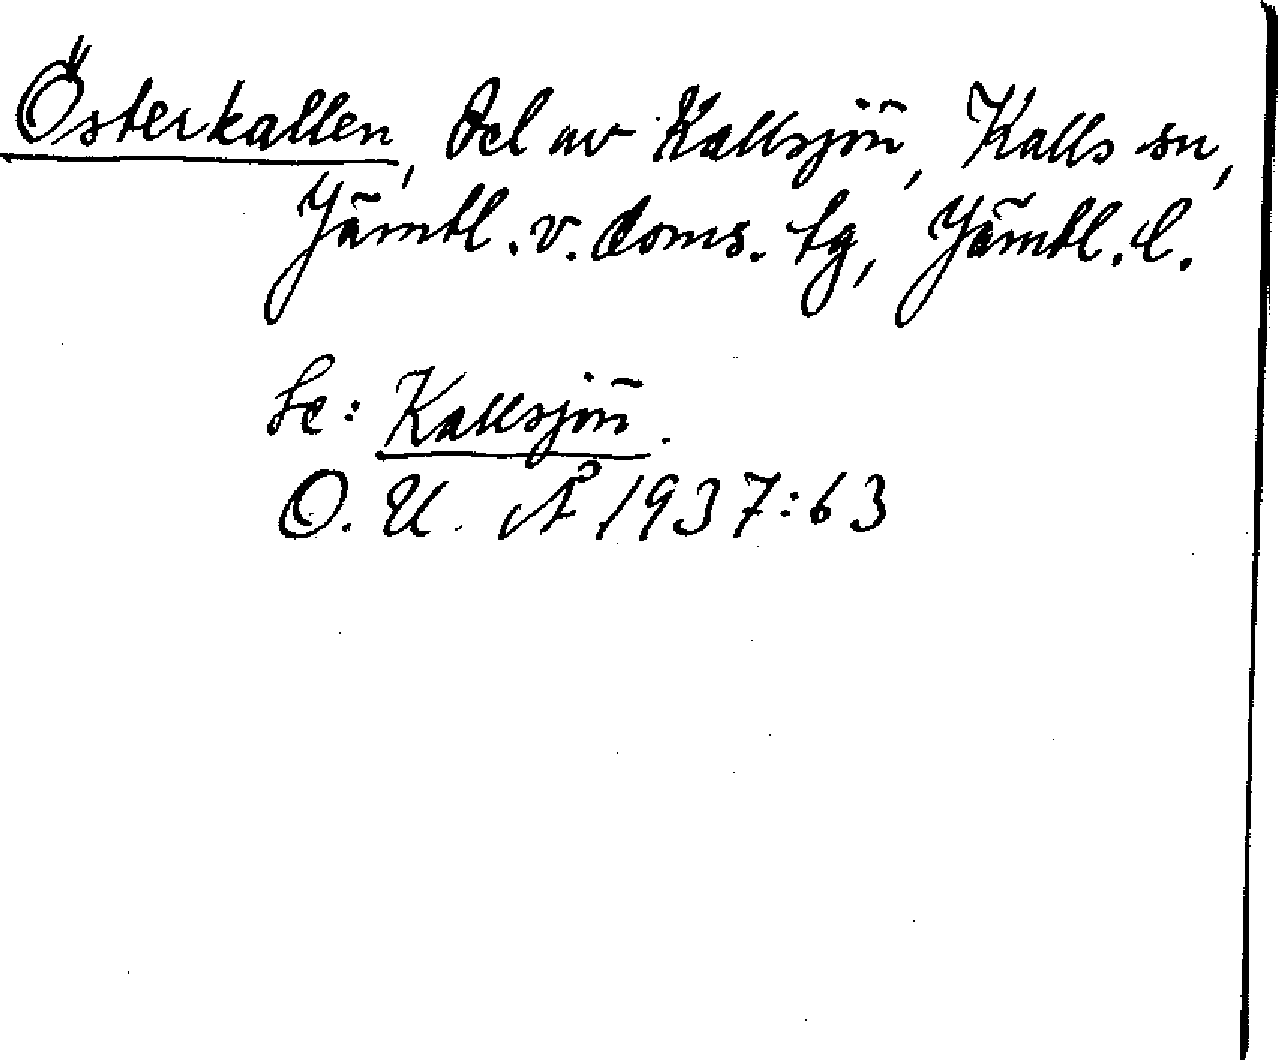 Österkallen, del av Kallsjön, Kalls sn,
Jämtl. v. doms. tg, Jämtl. l.
Se: Kallsjön.
O. U. Å 1937:63